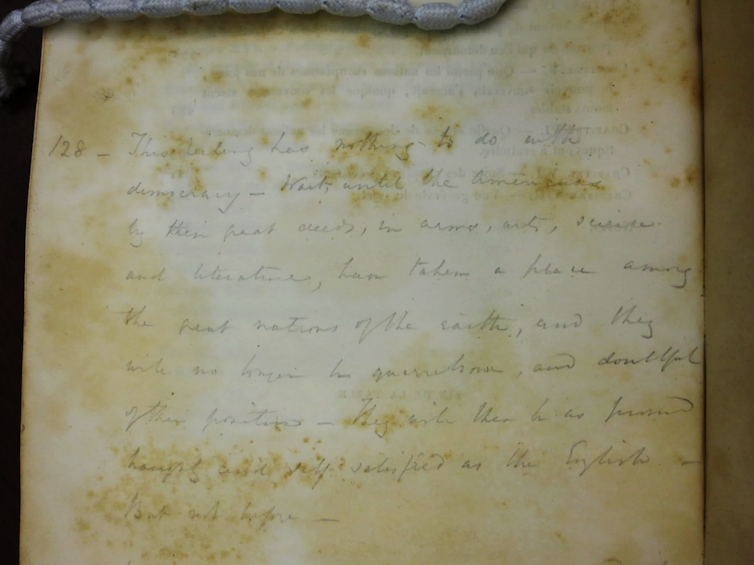 128 — This feeling has nothing to do with
democracy — Wait until the Americans
by their great deeds, in arms, arts, science
and literature, have taken a place among
the great nations of the earth, and they
will no longer be quarrelsome, and doubtful
of their position — They will then be as proud
haughty and self satisfied as the English —
But not before —